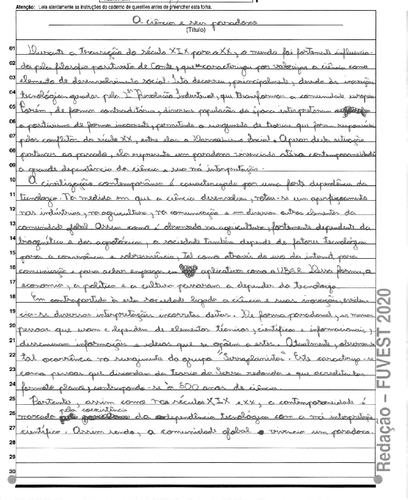 Atenção: Leia atentamente as instruções do caderno de questões antes de preencher esta folha.
A ciência e seu paradoxo
(Título)
01 Durante a transição do século XIX para o XX, o mundo foi fortemente influencia-
02 do pela filosofia positivista de Comte, que caracteriza por valorizar a ciência como
03 elemento de desenvolvimento social. Isto decorreu, principalmente, devido às inovações
04 tecnológicas geradas pela 2ª Revolução Industrial, que transformou a comunidade europeia.
05 Porém, de forma contraditória, diversas populações da época interpretaram
06 o positivismo de forma incorreta, permitindo o surgimento de teorias que foram responsáveis
07 pelos conflitos do século XX, entre elas o Darwinismo Social. Apesar desta situação
08 pertencer ao passado, ela representa um paradoxo vivenciado na contemporaneidade:
09 a grande dependência da ciência e sua má interpretação.
10 A civilização contemporânea é caracterizada por uma forte dependência da
11 tecnologia. Na medida em que a ciência desenvolveu, notou-se um aperfeiçoamento
12 nas indústrias, na agricultura, na comunicação e em diversos outros elementos da
13 comunidade global. Assim como é observado na agricultura, fortemente dependente da
14 transgênica e dos agrotóxicos, a sociedade também depende de fatores tecnológicos
15 para a convivência e sobrevivência, tal como através do uso da internet para
16 comunicação e para achar empregos aplicativos como o UBER. Dessa forma, a
17 economia, a política e a cultura passaram a depender da tecnologia.
18 Em contrapartida à esta sociedade ligada a ciência e suas inovações, eviden-
19 cia-se diversas interpretações incorretas destas. De forma paradoxal, as mesmas
20 pessoas que usam e dependem de elementos técnicos, científicos e informacionais,
21 disseminam informações e ideias que se opõem a estes. Atualmente, observa-se
22 tal ocorrência no surgimento do grupo "Terraplanistas". Este caracteriza-se
23 como pessoas que discordam da Teoria da Terra redonda e que acreditam em seu
24 formato plano, contrapondo-se à 500 anos de ciência.
25 Portanto, assim como nos séculos XIX e XX, a contemporaneidade é
26 marcada pela coexistência da dependência tecnológica com a má interpretação
27 científica. Assim sendo, a comunidade global vivencia um paradoxo.
28
29
30
Redação – FUVEST 2020